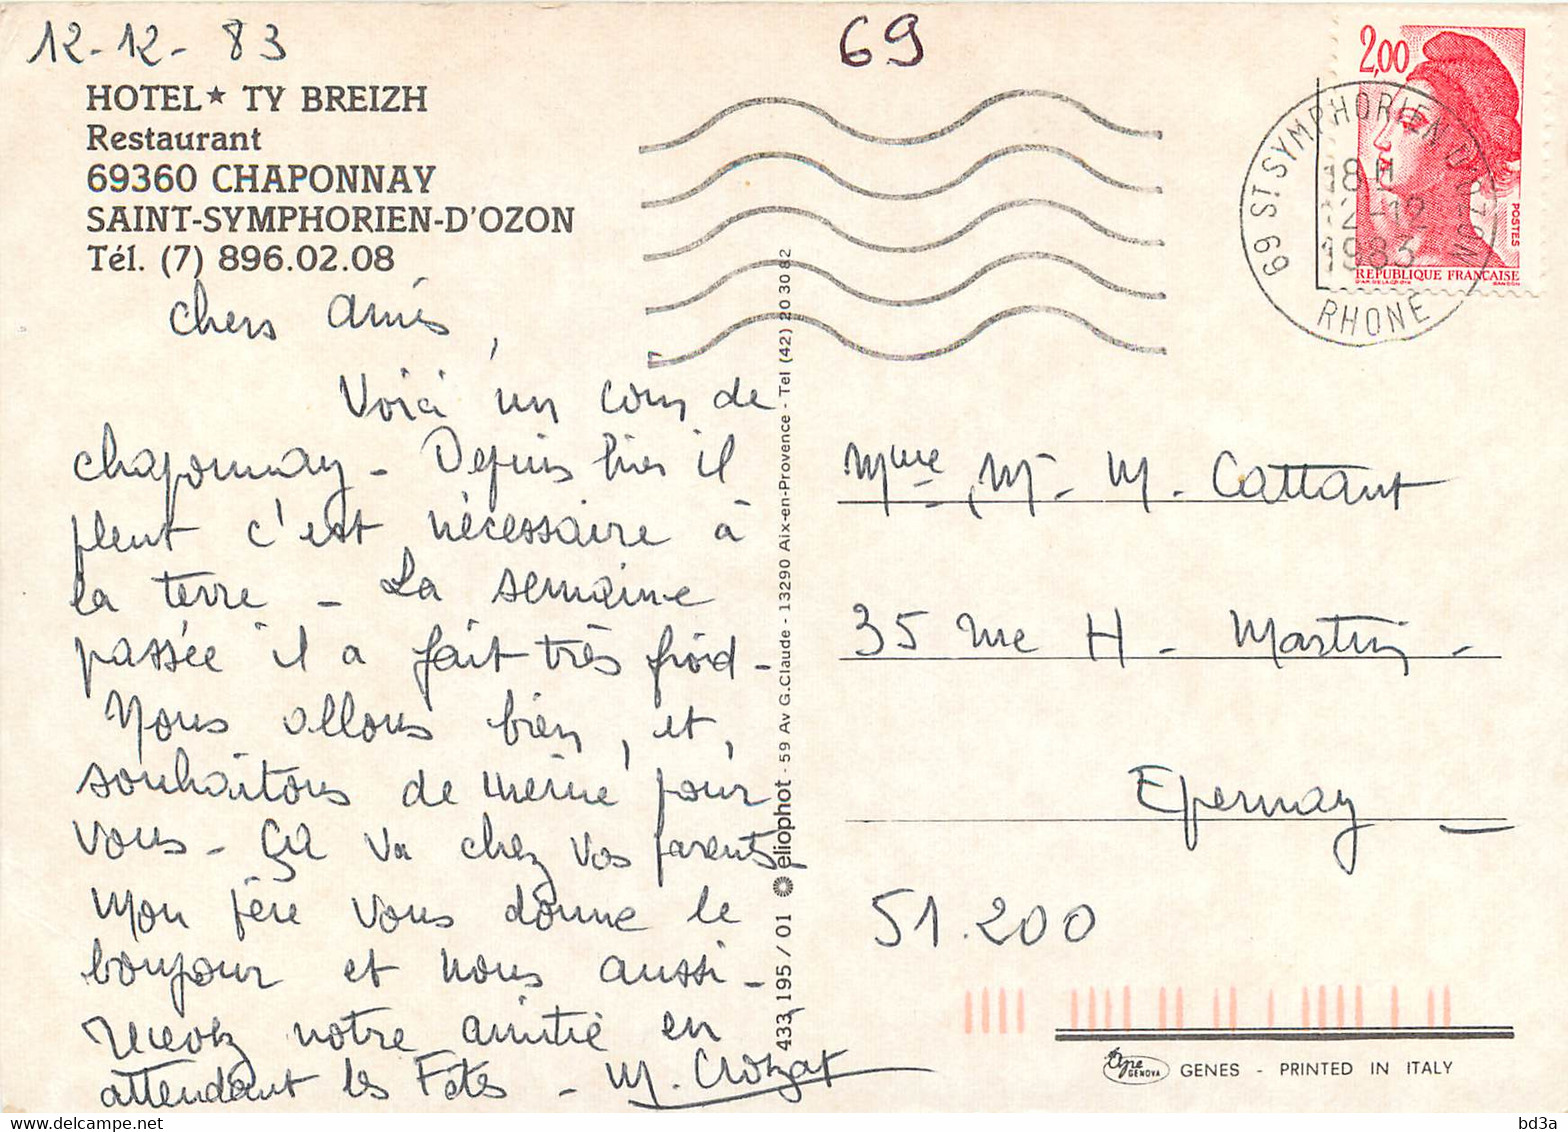 12-12-83
69
HOTEL★ TY BREIZH
Restaurant
69360 CHAPONNAY
SAINT-SYMPHORIEN-D'OZON
Tél. (7) 896.02.08
Chers Amis,
Voici un coin de
chaponnay - Depuis hier il
pleut c'est nécessaire à
la terre - La semaine
passée il a fait très froid -
Nous allons bien, et,
souhaitons de même pour
vous - ça va chez vos parents -
Mon père vous donne le
bonjour et nous aussi -
Recevez notre amitié en
attendant les Fêtes - M. Crozat
433 195 / 01 eliophot - 59 Av G.Claude - 13290 Aix-en-Provence - Tel (42) 20 30 82
2,00
POSTES
REPUBLIQUE FRANÇAISE
69 ST SYMPHORIEN D'OZON
18 H
12-12
1983
RHONE
Mme, Mr - M. Cattant
35 rue H - Martin -
Epernay
51.200
GENOVA
GENES - PRINTED IN ITALY
bd3a